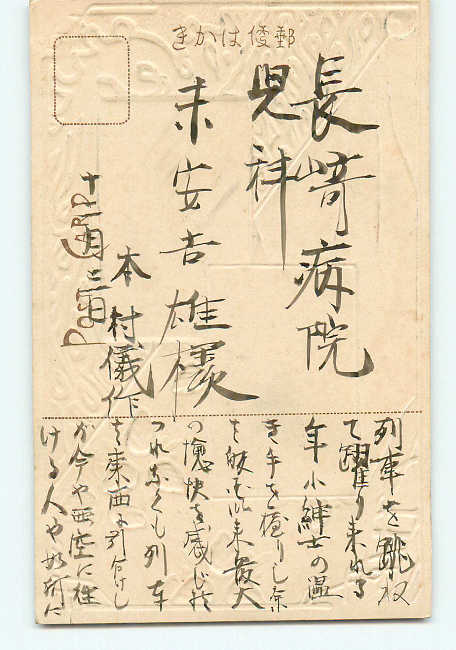 郵便はかき
長崎病院
児科
末安吉雄様
本村儀作
十月三日
POST CARD
列車を眺
て躍り来れる
年小紳士の温
き手を握りし余
は 以来最大
の愉快を感じ
つれなくも列車
は東西に別 けし
が今や西空に在
ける人や如何に